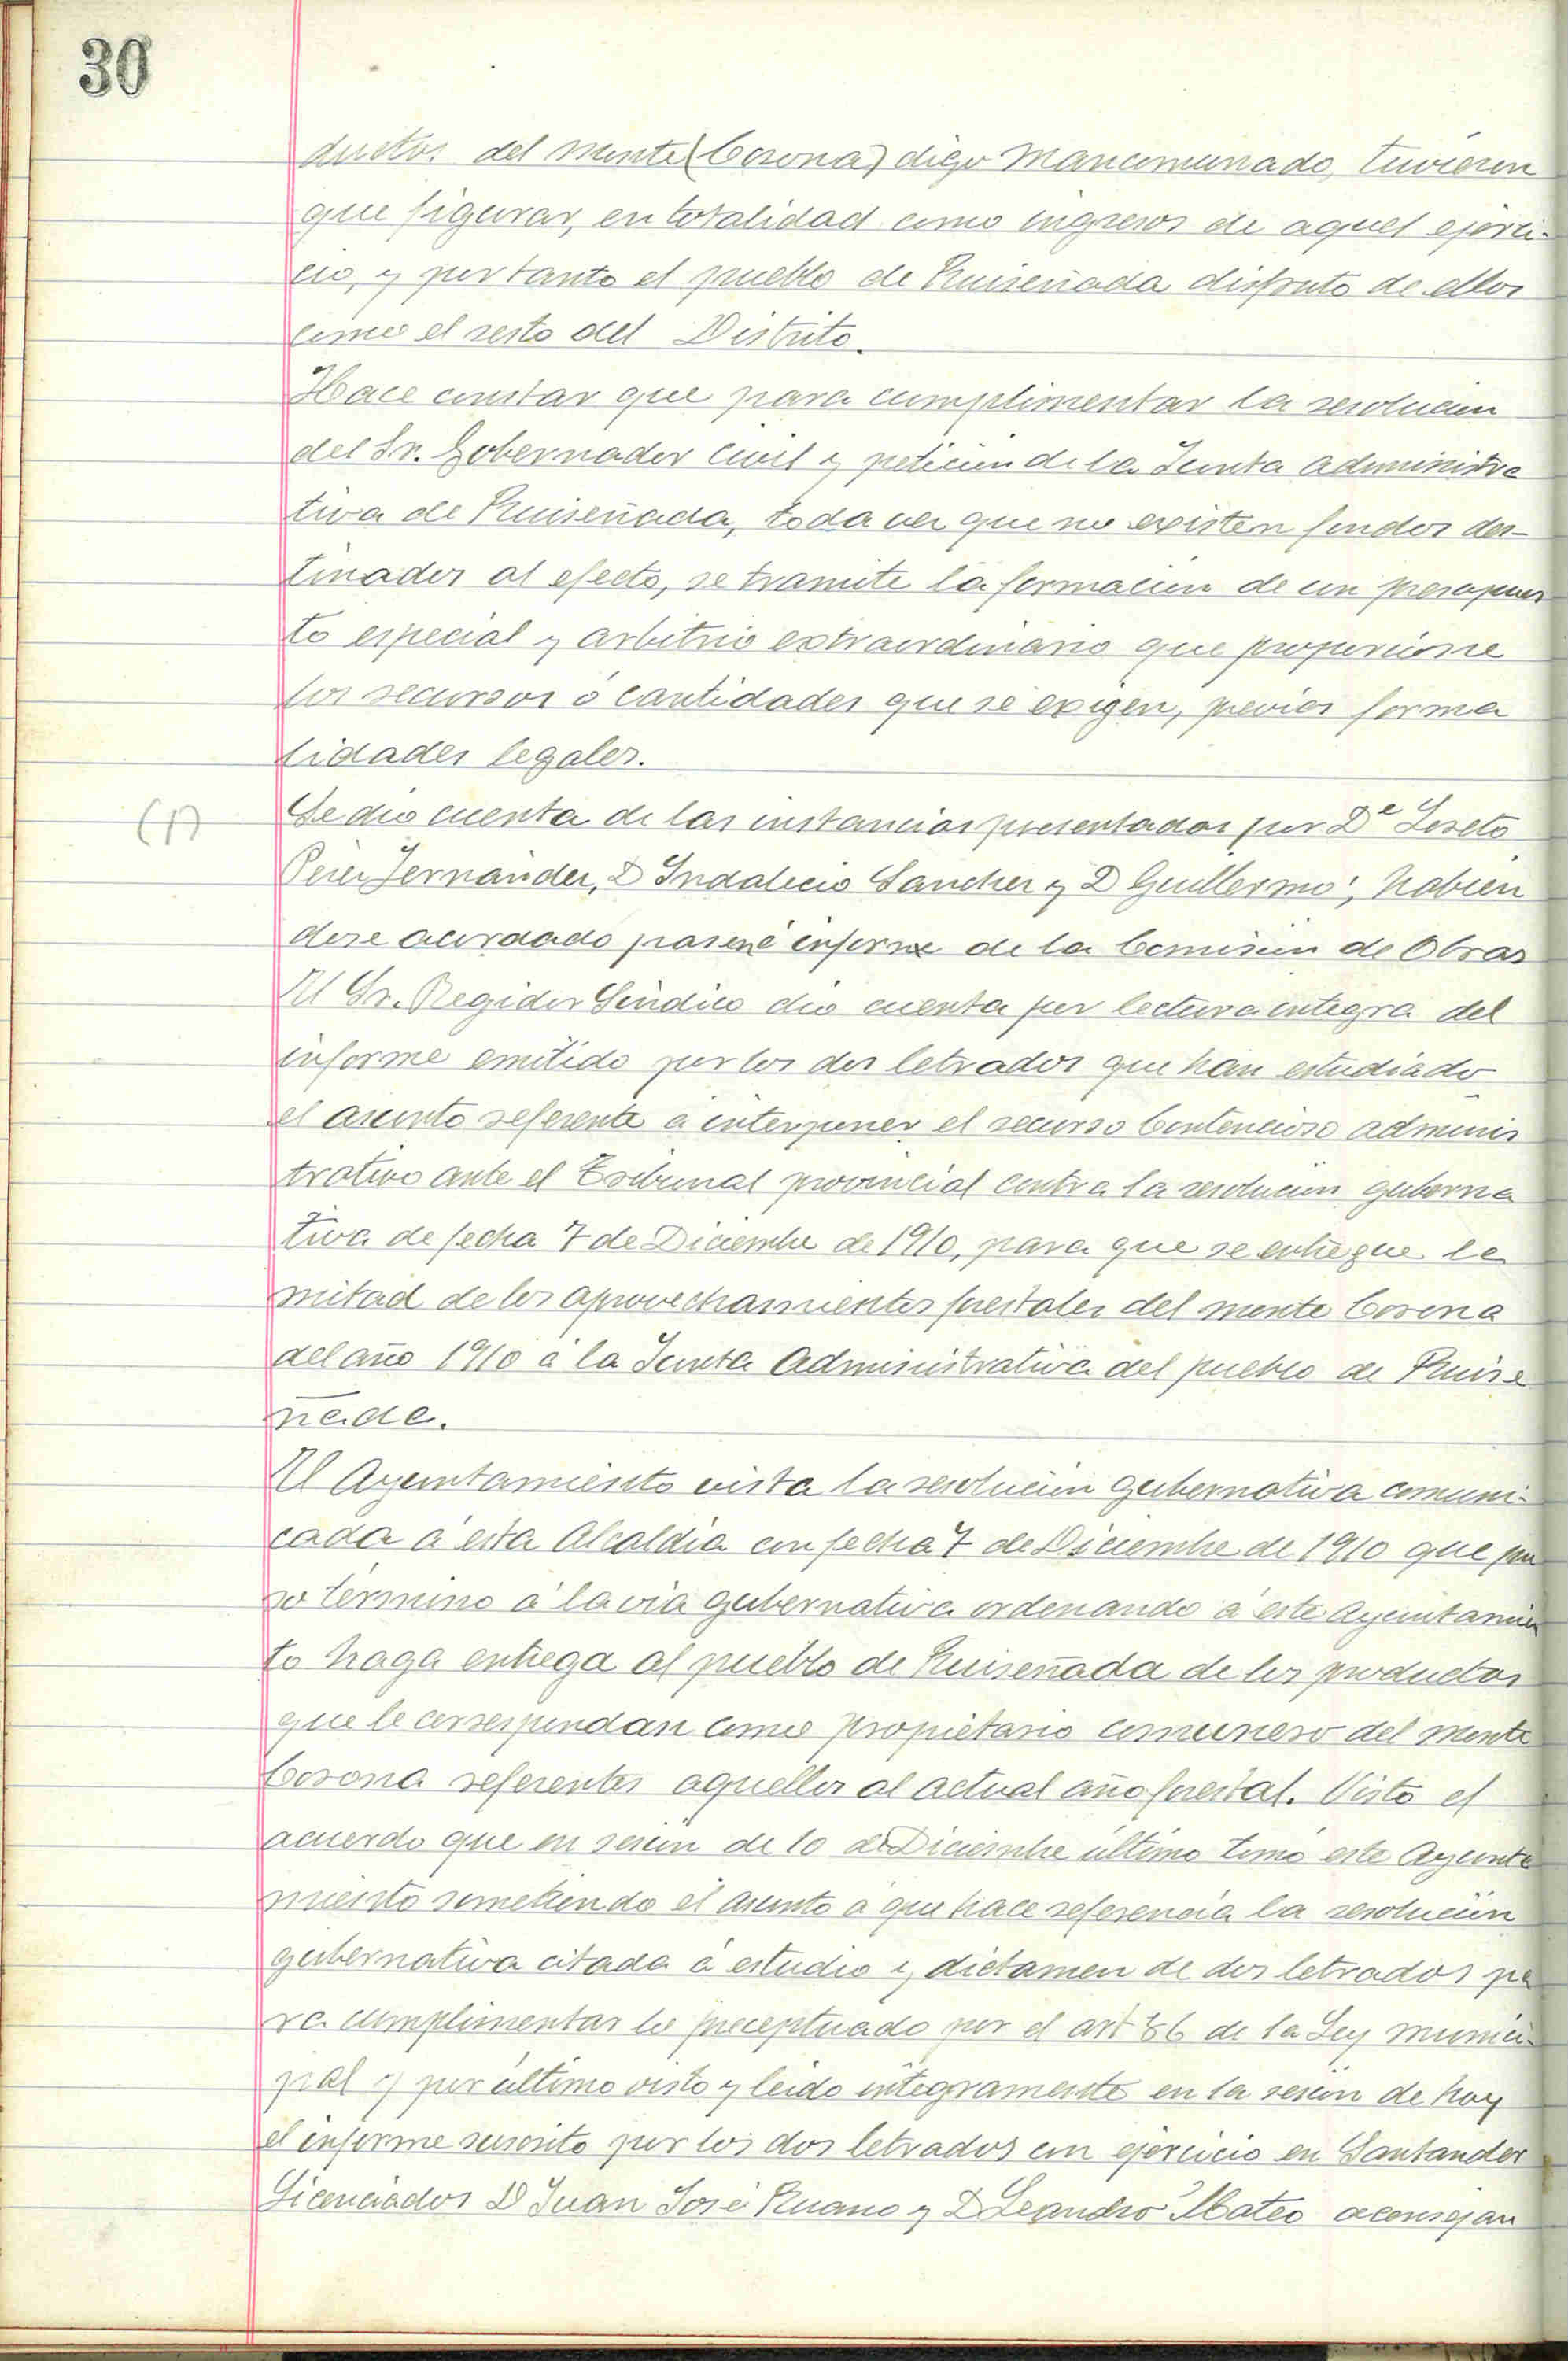 30
ductos del monte (Corona) digo Mancomunado, tuvieron
que figurar, en totalidad como ingresos de aquel ejerci-
cio, y por tanto el pueblo de Ruiseñada disfruto de ellos
como el resto del Distrito.
Hace constar que para cumplimentar la resolucion
del Sr. Gobernador Civil y peticion de la Junta administra
tiva de Ruiseñada, toda vez que no existen fondos des-
tinados al efecto, se tramite la formacion de un presupues
to especial y arbitrio extraordinario que proporcione
los recursos ó cantidades que se exigen, previas forma
lidades legales.
(1) Se dio cuenta de las instancias presentadas por Dª Loreto
Perez Fernández, D Indalecio Sanchez y D Guillermo ; habien
dose acordado pasen á informe de la Comision de Obras
El Sr. Regidor Síndico dio cuenta por lectura integra del
informe emitido por los dos letrados que han estudiado
el asunto referente a interponer el recurso Contencioso adminis
trativo ante el Tribunal provincial contra la resolucion guberna
tiva de fecha 7 de Diciembre de 1910, para que se entregue la
mitad de los aprovechamientos forestales del monte Corona
del año 1910 á la Junta Administrativa del pueblo de Ruise
ñada.
El Ayuntamiento vista la resolucion gubernativa comuni-
cada á esta Alcaldia con fecha 7 de Diciembre de 1910 que pu
so término á la via gubernativa ordenando á este Ayuntamien
to haga entrega al pueblo de Ruiseñada de los productos
que le correspondan como propietario comunero del monte
Corona referentes aquellos al actual año forestal. Visto el
acuerdo que en sesion de 10 de Diciembre último tomó este Ayunta
miento sometiendo el asunto a que hace referencia la resolución
gubernativa citada á estudio y dictamen de dos letrados pa
ra cumplimentar lo preceptuado por el art 86 de la Ley munici-
pal y por último visto y leido integramente en la sesion de hoy
el informe suscrito por los dos letrados con ejercicio en Santander
Licenciados D Juan José Ruano y D Leandro Mateo aconsejan